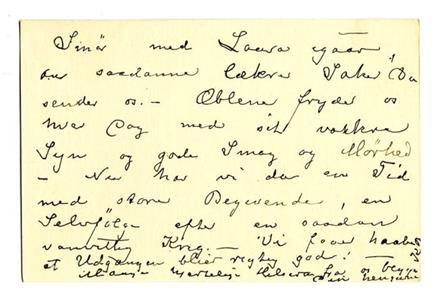 med Laura igaar
saadanne lækre Sake Du
sender os. – Æblene fryder os
hver Dag med sit vakkre
Syn og gode Smag og Mørhed
– Nu har vi da en Tid
med store Begivende, en
Selvfølge efter en saadan
vanvittig Krig. – Vi faar haabe
at Udgangen blir rigtig god! –
Mange hjertelige Hilsener fra os begge